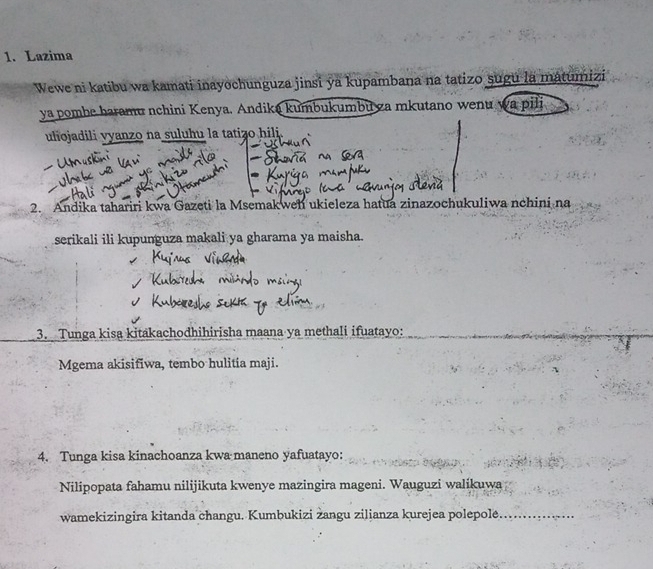 1. Lazima
Wewe ni katibu wa kamati inayochunguza jinsi ya kupambana na tatizo sugu la matumizi
ya pombe haramu nchini Kenya. Andika kumbukumbu za mkutano wenu wa pili
uliojadili vyanzo na suluhu la tatizo hili.
- Umaskini
- Ushauri
- Sheria na sera
- Kupiga marufuku
- vifungo kwa wavunjaji sheria
2. Andika tahariri kwa Gazeti la Msemakweli ukieleza hatua zinazochukuliwa nchini na
serikali ili kupunguza makali ya gharama ya maisha.
✓ Kujenga viwanda
✓ Kuboresha miundo msingi
✓ Kuboresha sekta ya elimu
✓
3. Tunga kisa kitakachodhihirisha maana ya methali ifuatayo:
Mgema akisifiwa, tembo hulitia maji.
4. Tunga kisa kinachoanza kwa maneno yafuatayo:
Nilipopata fahamu nilijikuta kwenye mazingira mageni. Wauguzi walikuwa
wamekizingira kitanda changu. Kumbukizi zangu zilianza kurejea polepole................